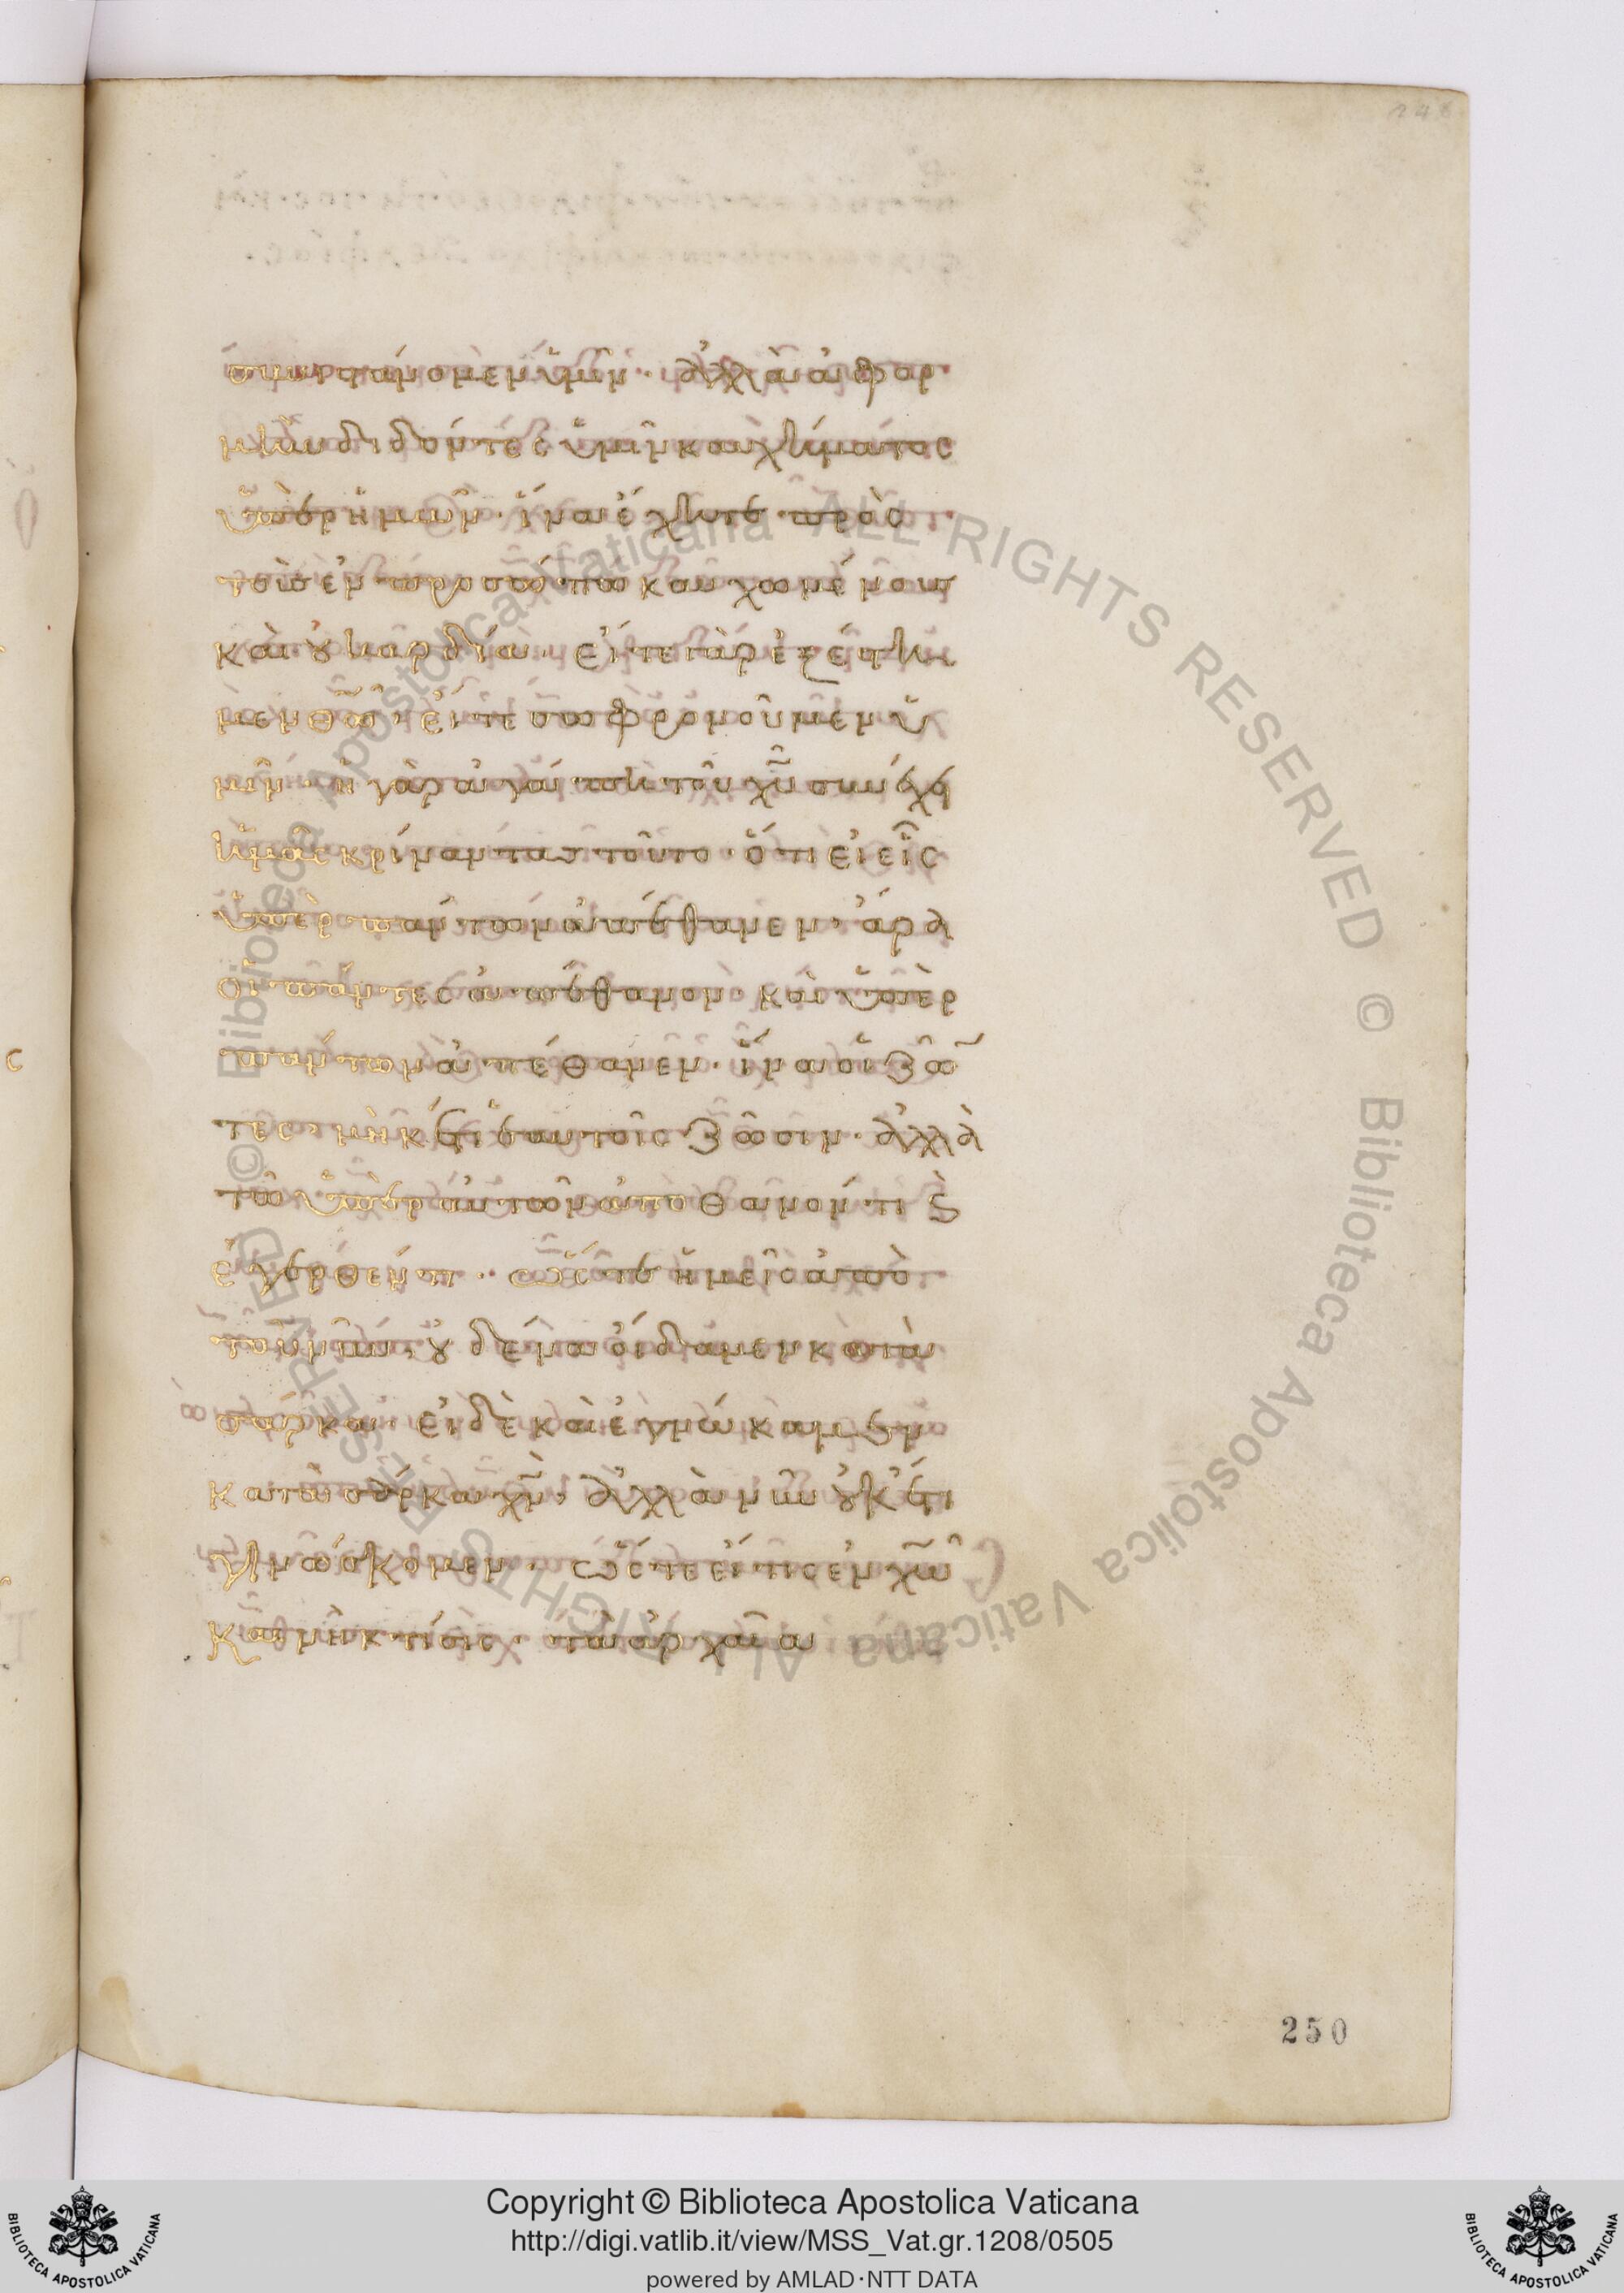 συνιστάνομεν ὑμῖν· ἀλλὰ ἀφορ
μὴν διδόντες ὑμῖν καυχήματος
ὑπὲρ ἡμῶν· ἵνα ἔχητε πρὸς
τοὺς ἐν προσώπω καυχωμένους
καὶ οὐ καρδία· εἴτε γὰρ ἐξέστη
μεν θῶ· εἴτε σωφρονοῦμεν ὑ
μῖν· ἡ γὰρ ἀγάπη τοῦ χυ συνέχει
ἡμᾶς κρίναντας τοῦτο· ὅτι εἰ εἷς
ὑπὲρ πάντων ἀπέθανεν· ἄρα
οἱ πάντες ἀπέθανον· καὶ ὑπὲρ
πάντων ἀπέθανεν· ἵνα οἱ ζῶ
τες· μηκέτι ἑαυτοῖς ζῶσιν· ἀλλὰ
τῶ ὑπὲρ αὐτῶν ἀποθανόντι ϗ
ἐγερθέντι·· ὥστε ἡμεῖς ἀπὸ
τοῦ νῦν οὐδένα οἴδαμεν κατὰ
σάρκα· εἰ δὲ καὶ ἐγνώκαμεν
κατὰ σάρκα χν, ἀλλὰ νῦν οὐκέτι
γινώσκομεν· ὥστε εἴ τις ἐν χω
καινὴ κτίσις· τὰ ἀρχαῖα
250
Copyright © Biblioteca Apostolica Vaticana
http://digi.vatlib.it/view/MSS_Vat.gr.1208/0505
powered by AMLAD·NTT DATA